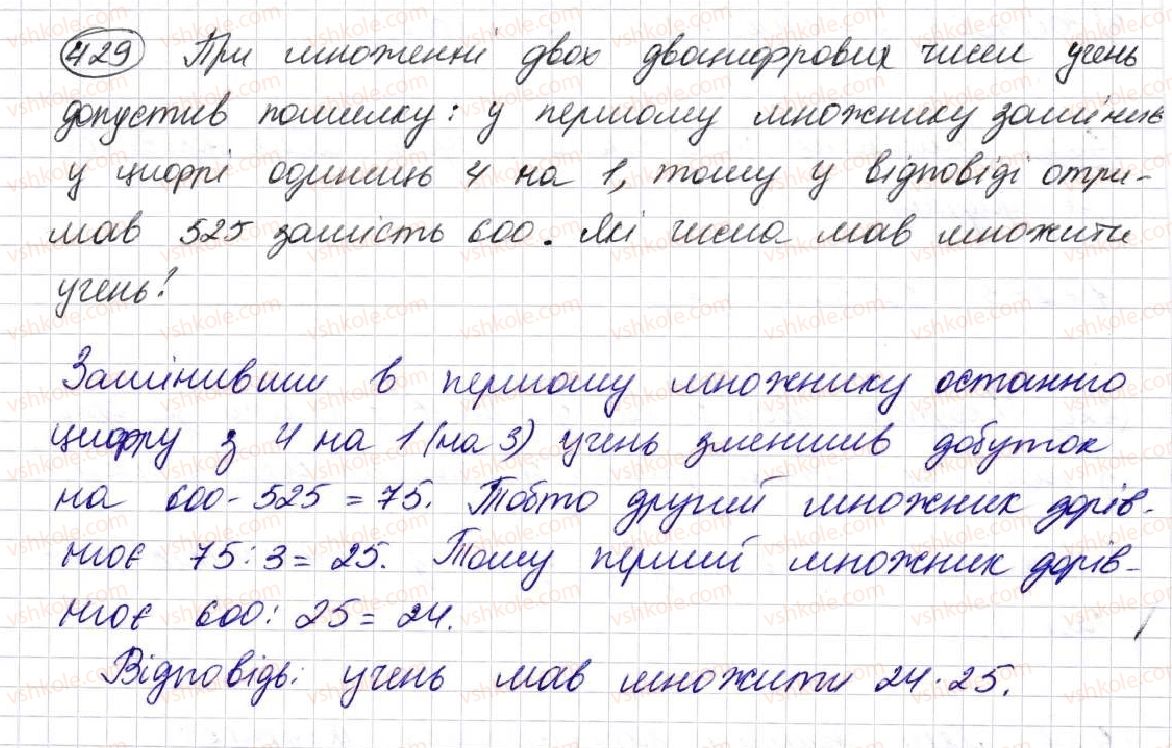 429 При множенні двох двоцифрових чисел учень
допустив помилку: у першому множнику замінив
у цифрі одиниць 4 на 1, тому у відповіді отри-
мав 525 замість 600. Які числа мав множити
учень?
Замінивши в першому множнику останню
цифру з 4 на 1 (на 3) учень зменшив добуток
на 600 - 525 = 75. Тобто другий множник дорів-
нює 75 : 3 = 25. Тому перший множник дорів-
нює 600 : 25 = 24.
Відповідь: учень мав множити 24 · 25.